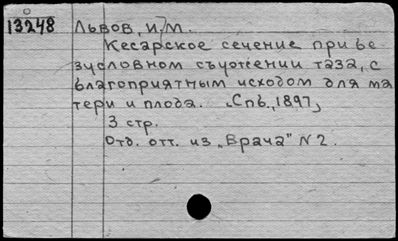 13248 Львов, И. М.
Кесарское сечение при бе
зусловном съужении таза, с
благоприятным исходом для ма
тери и плода. Спб., 1897,
3 стр.
Отд. отт. из „Врача" N 2.